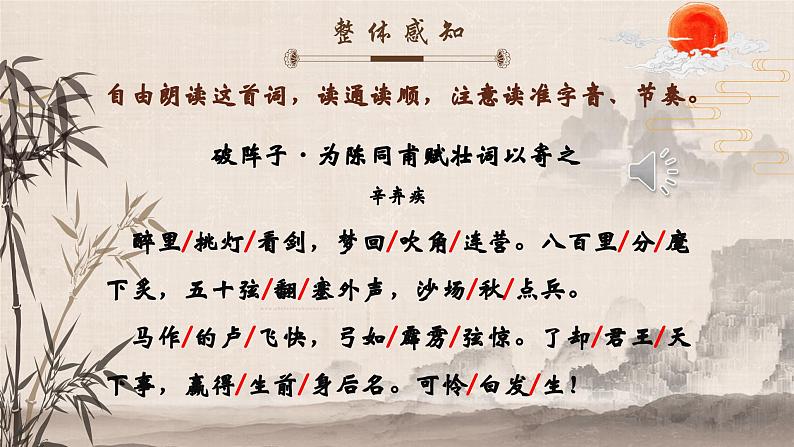 整体感知
自由朗读这首词，读通读顺，注意读准字音、节奏。
破阵子·为陈同甫赋壮词以寄之
辛弃疾
醉里/挑灯/看剑，梦回/吹角/连营。八百里/分/麾
下炙，五十弦/翻/塞外声，沙场/秋/点兵。
马作/的卢/飞快，弓如/霹雳/弦惊。了却/君王/天
下事，赢得/生前/身后名。可怜/白发/生！